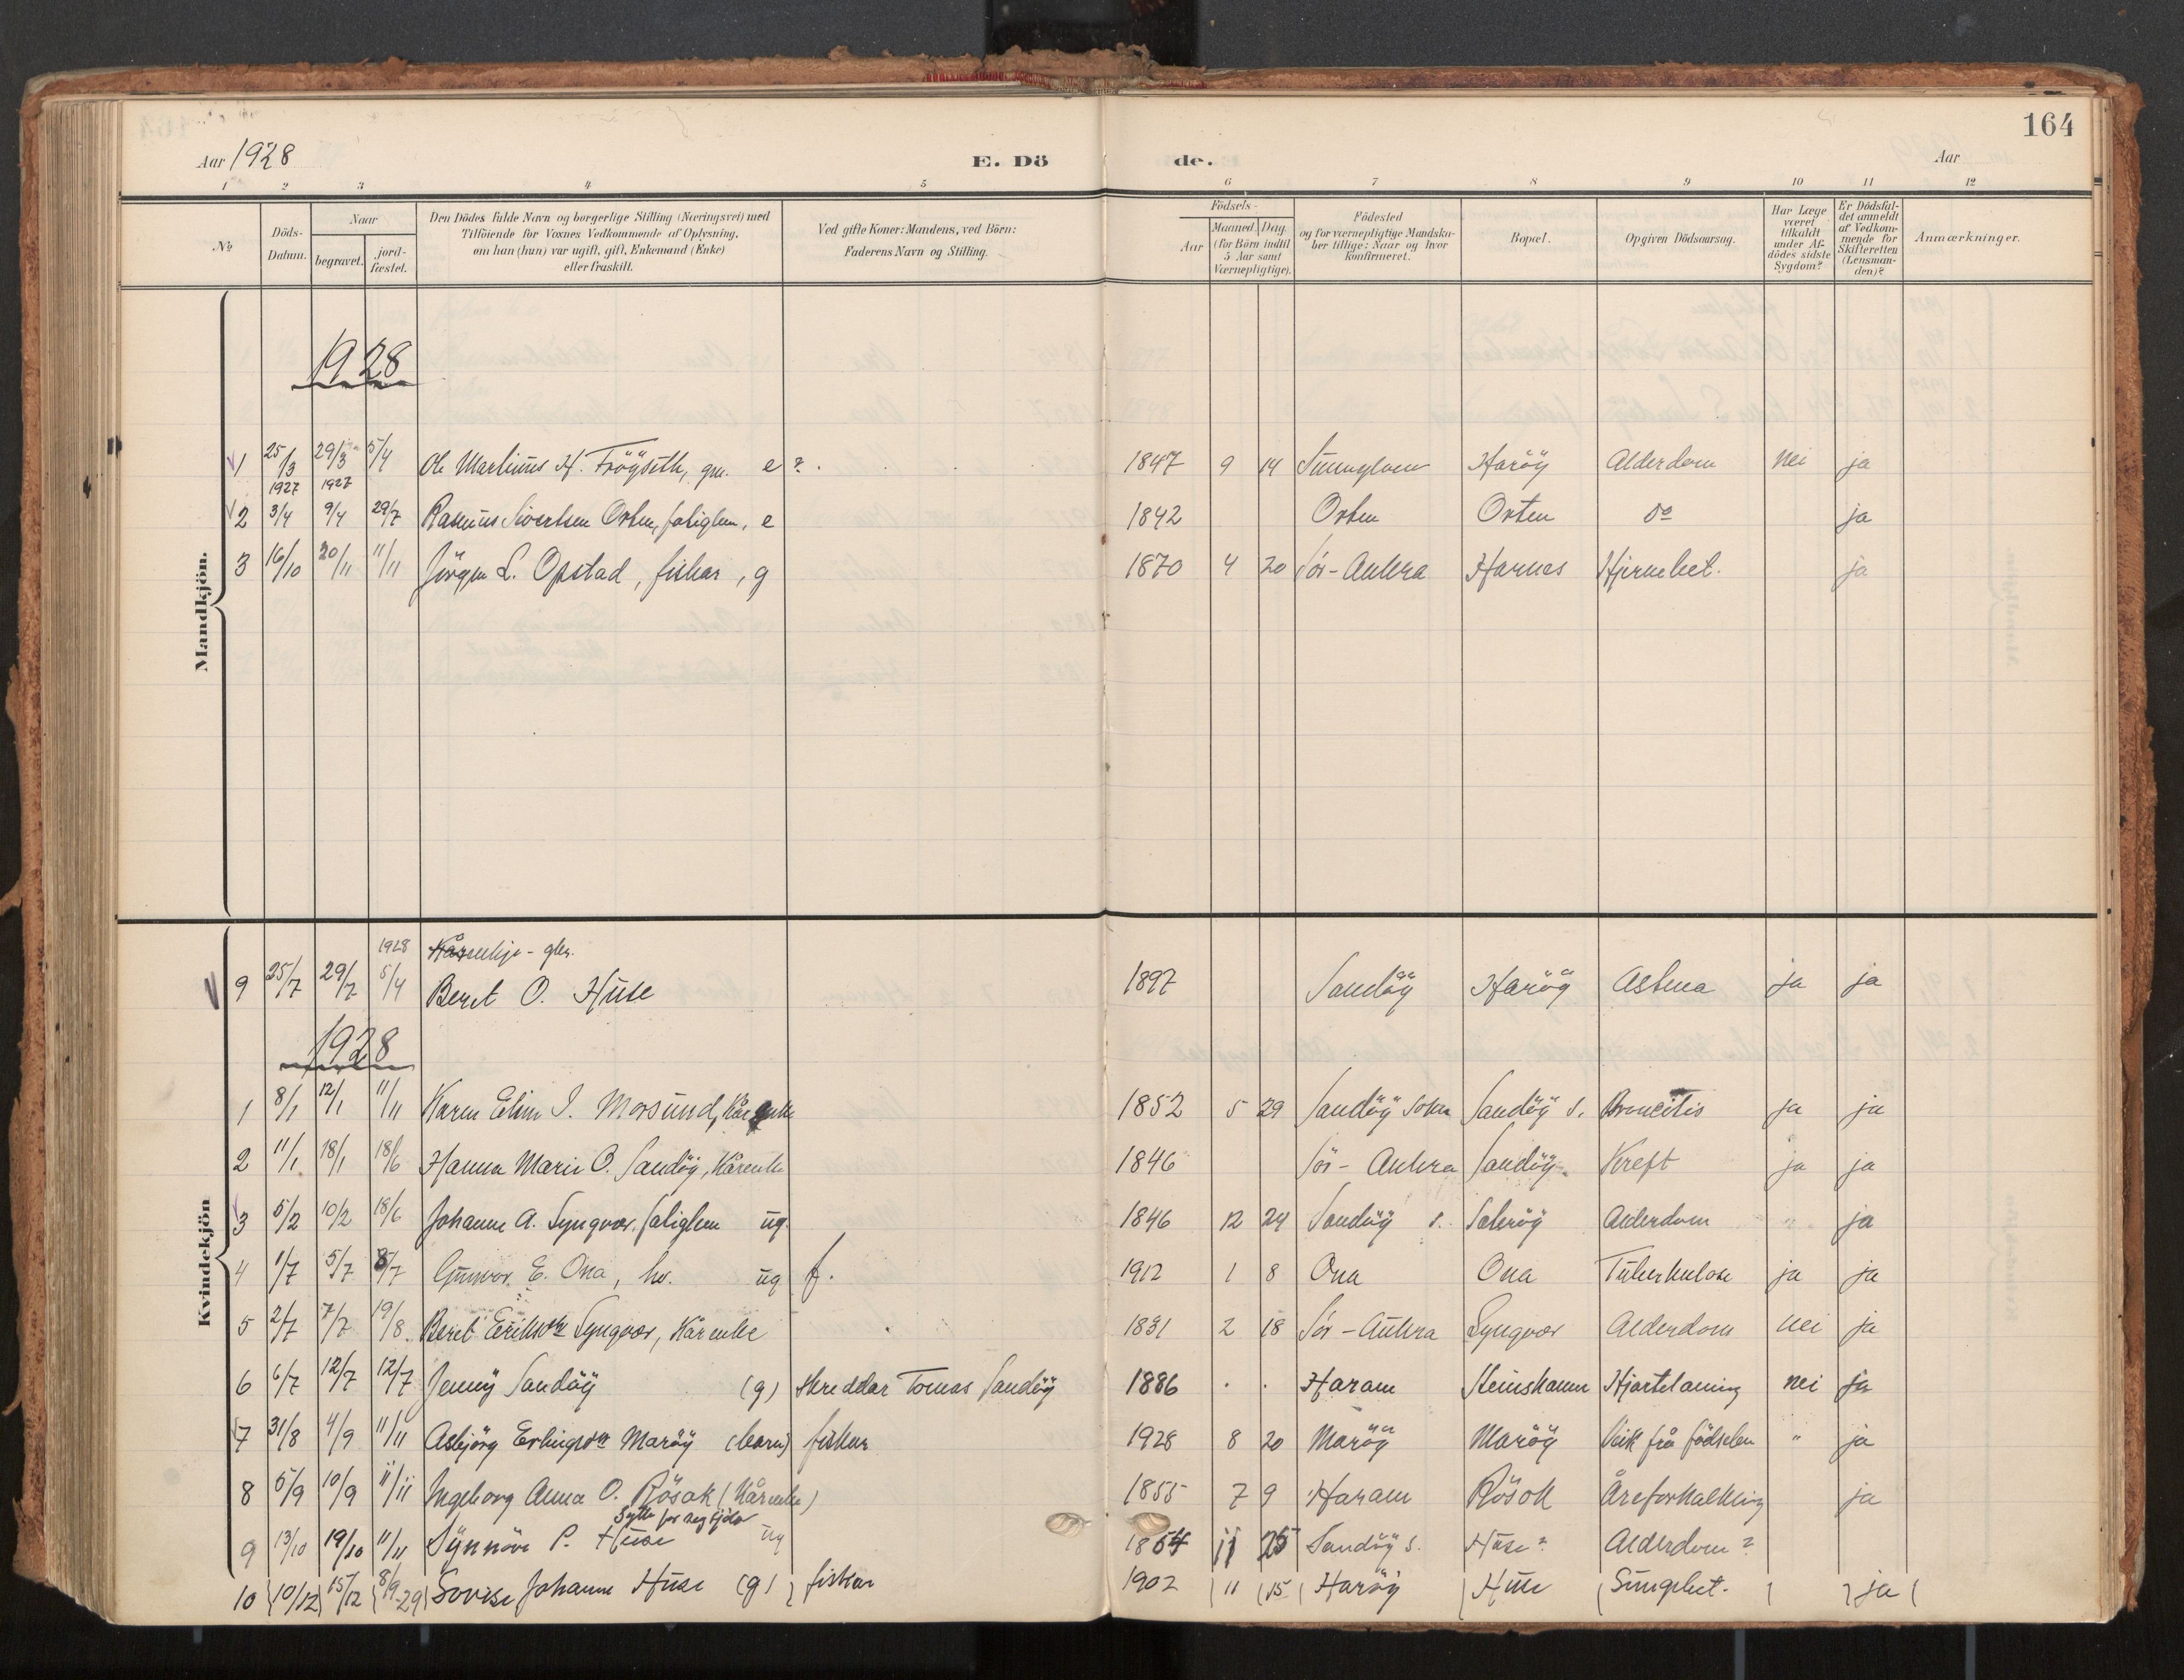 164
Aar 1928 E. Dö de. Aar
1 2 3 4 5 6 7 8 9 10 11 12
No. Döds-Datum. Naar begravet. jord-fæstet. Den Dödes fulde Navn og borgerlige Stilling (Næringsvei) med Tilföiende for Voxnes Vedkommende af Oplysning, om han (hun) var ugift, gift, Enkemand (Enke) eller fraskilt. Ved gifte Koner: Mandens, ved Börn: Faderens Navn og Stilling. Födsels- Aar Maaned. Dag. (for Börn indtil 5 Aar samt Værnepligtige). Födested og for værnepligtige Mandskaber tillige: Naar og hvor konfirmeret. Bopæl. Opgiven Dödsaarsag. Har Læge været tilkaldt under Afdödes sidste Sygdom? Er Dödsfaldet anmeldt af Vedkommende for Skifteretten (Lensmanden)? Anmærkninger.
Mandkjön.
1928
1 25/3 1927 29/3 1927 5/4 Ole Martinus H. Frögseth, gm. e ? 1847 9 14 Sunnylven Haröy Alderdom Nei ja
2 3/4 9/4 29/7 Rasmus Sivertsen Orten, fatiglem, e 1842 Orten Orten do ja
3 16/10 20/11 11/11 Jörgen L. Opstad, fiskar, g 1870 4 20 Sör-Aukra Harnes Hjernebet. ja
Kvindekjön
1928 Kårenkje - gbr.
9 25/7 29/7 5/4 Beret O. Huse 1897 Sandöy Haröy Astma ja ja
1928
1 8/1 12/1 11/11 Karen Elin I. Morsund, Kårenke 1852 5 29 Sandöy sokn Sandöy s. Broncitis ja ja
2 11/1 18/1 18/6 Hanna Marie O. Sandöy, Kårenke 1846 Sör-Aukra Sandöy Kreft ja ja
3 5/2 10/2 18/6 Johanne A. Lyngvær, fatiglem ug. 1846 12 24 Sandöy s. Selröy Alderdom " ja
4 1/7 5/7 8/7 Gunvor E. Ona, hv. ug f. 1912 1 8 Ona Ona Tuberkulose ja ja
5 2/7 7/7 19/8 Beret Eriksdtr Lyngvær, Kårenke 1831 2 18 Sör-Aukra Lyngvær Alderdom nei ja
6 6/7 12/7 12/7 Jenny Sandöy (g) skreddar Tomas Sandöy 1886 . . Haram Steinshamn Hjartelaming nei ja
7 31/8 4/9 11/11 Asbjörg Erlingsdtr Maröy (barn) fiskar 1928 8 20 Maröy Maröy Veik frå födselen " ja
8 5/9 10/9 11/11 Ingeborg Anna O. Rösok (Kårenke) 1855 7 9 Haram Rösok Åreforkalkning ja
9 13/10 19/10 11/11 Synnöve P. Huse ug 1854 11 25 Sandöy s. Huse? Alderdom?
10 10/12 15/12 8/9-29 Lovise Johanne Huse (g) fiskar 1902 11 15 Haröy Huse Lungebet. ja